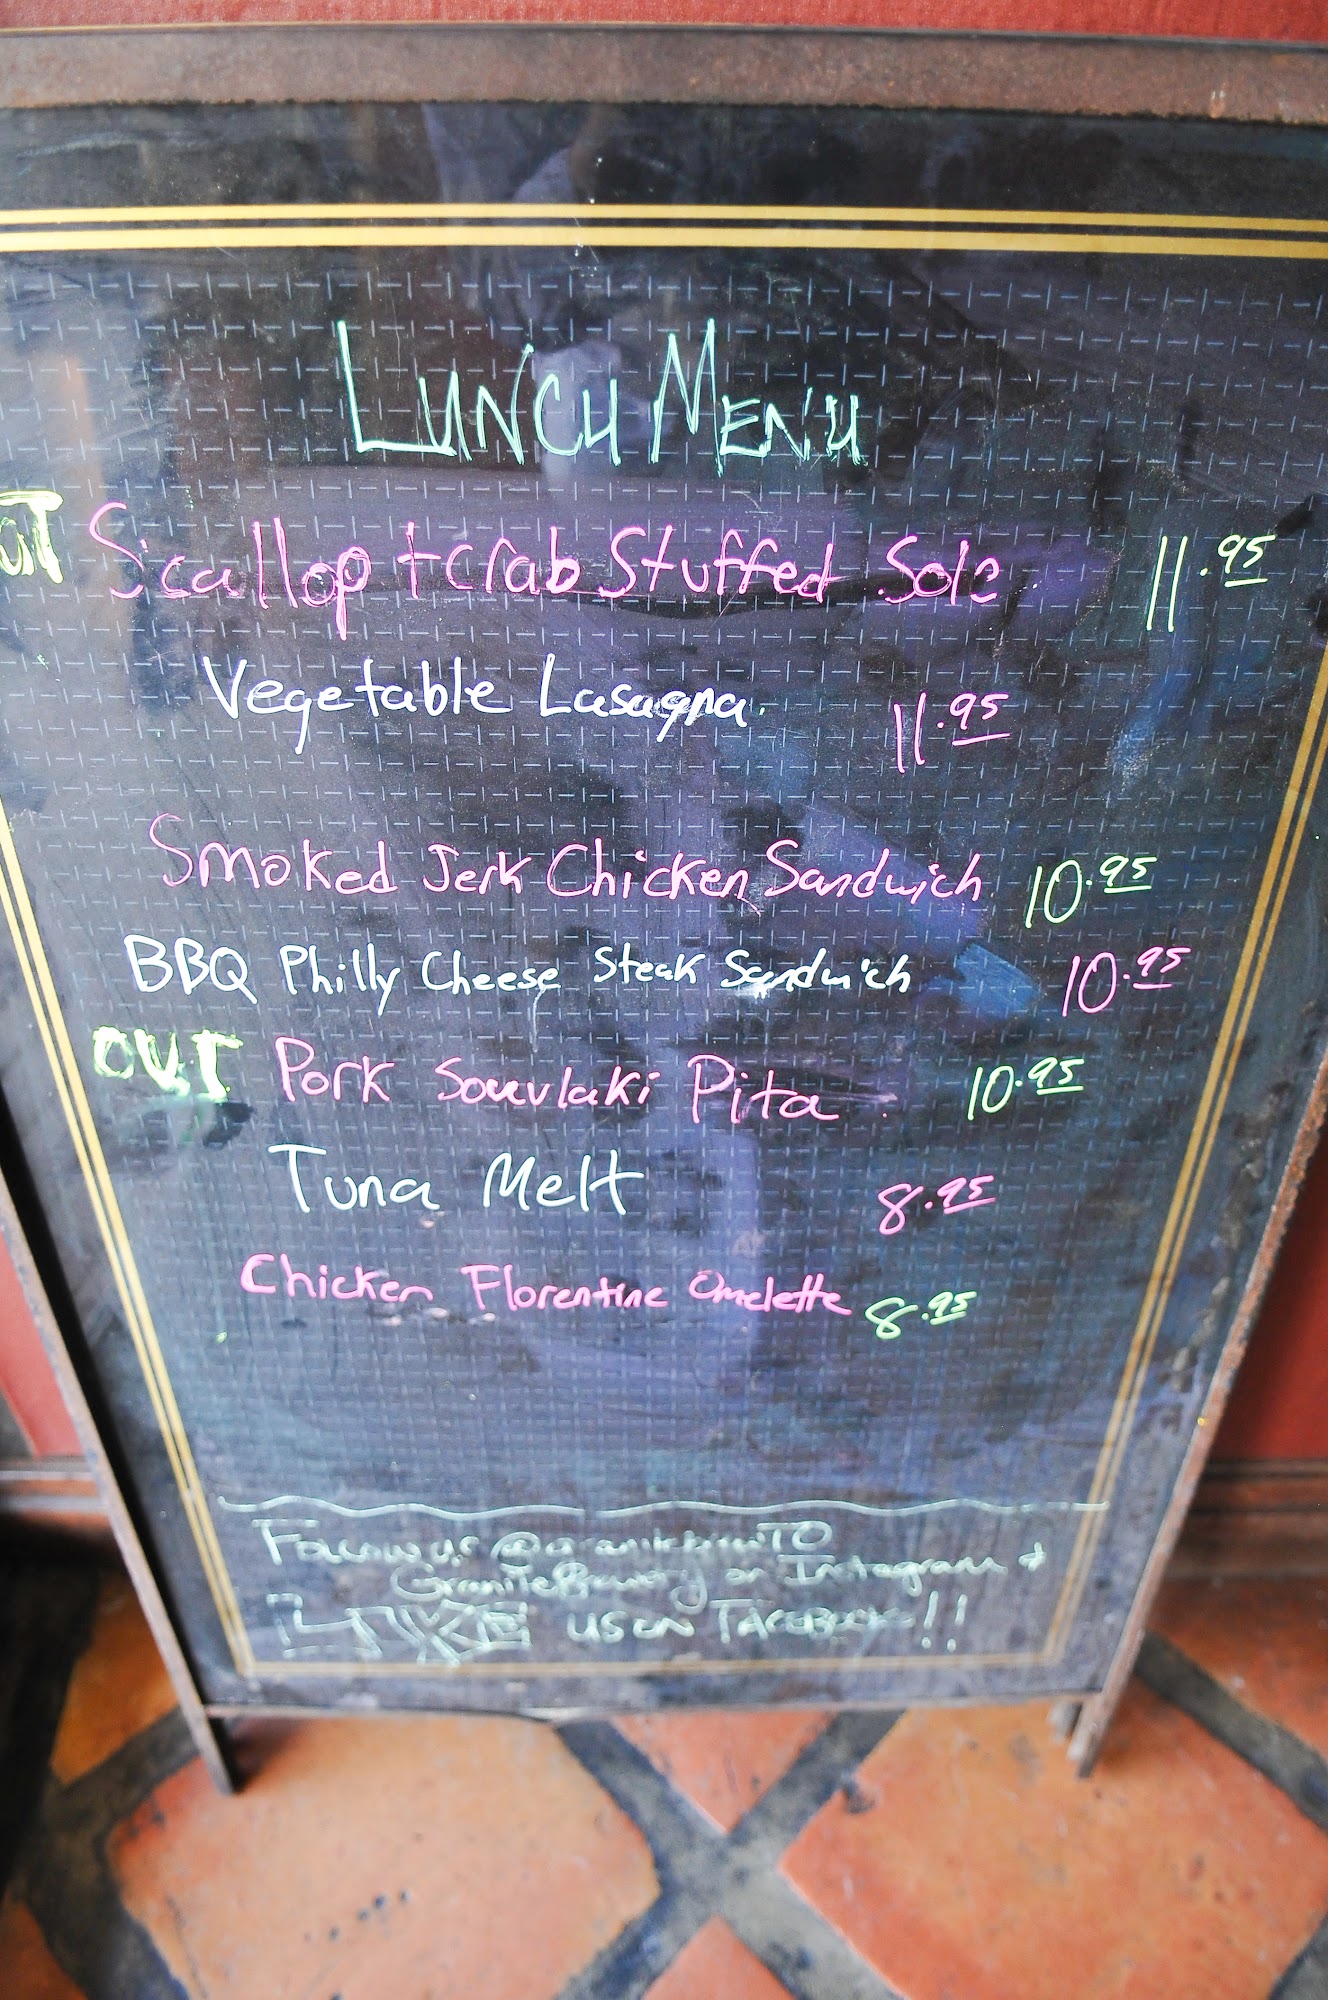 LUNCH MENU
OUT Scallop + Crab Stuffed Sole 11.95
Vegetable Lasagna 11.95
Smoked Jerk Chicken Sandwich 10.95
BBQ Philly Cheese Steak Sandwich 10.95
OUT Pork Souvlaki Pita 10.95
Tuna Melt 8.95
Chicken Florentine Omelette 8.95
Follow us
GraniteBrewery on Instagram +
LIKE US ON FACEBOOK!!